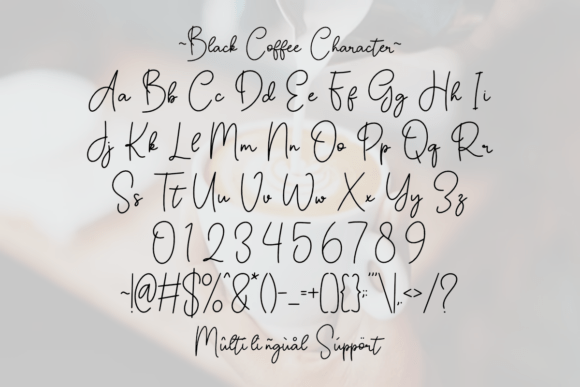 ~Black Coffee Character~
Aa Bb Cc Dd Ee Ff Gg Hh Ii
Jj Kk Ll Mm Nn Oo Pp Qq Rr
Ss Tt Uu Vv Ww Xx Yy Zz
0123456789
~!@#$%^&*()-_=+(){}:;"'\|,.<>/?
Mûltilïñgùàl Súppört